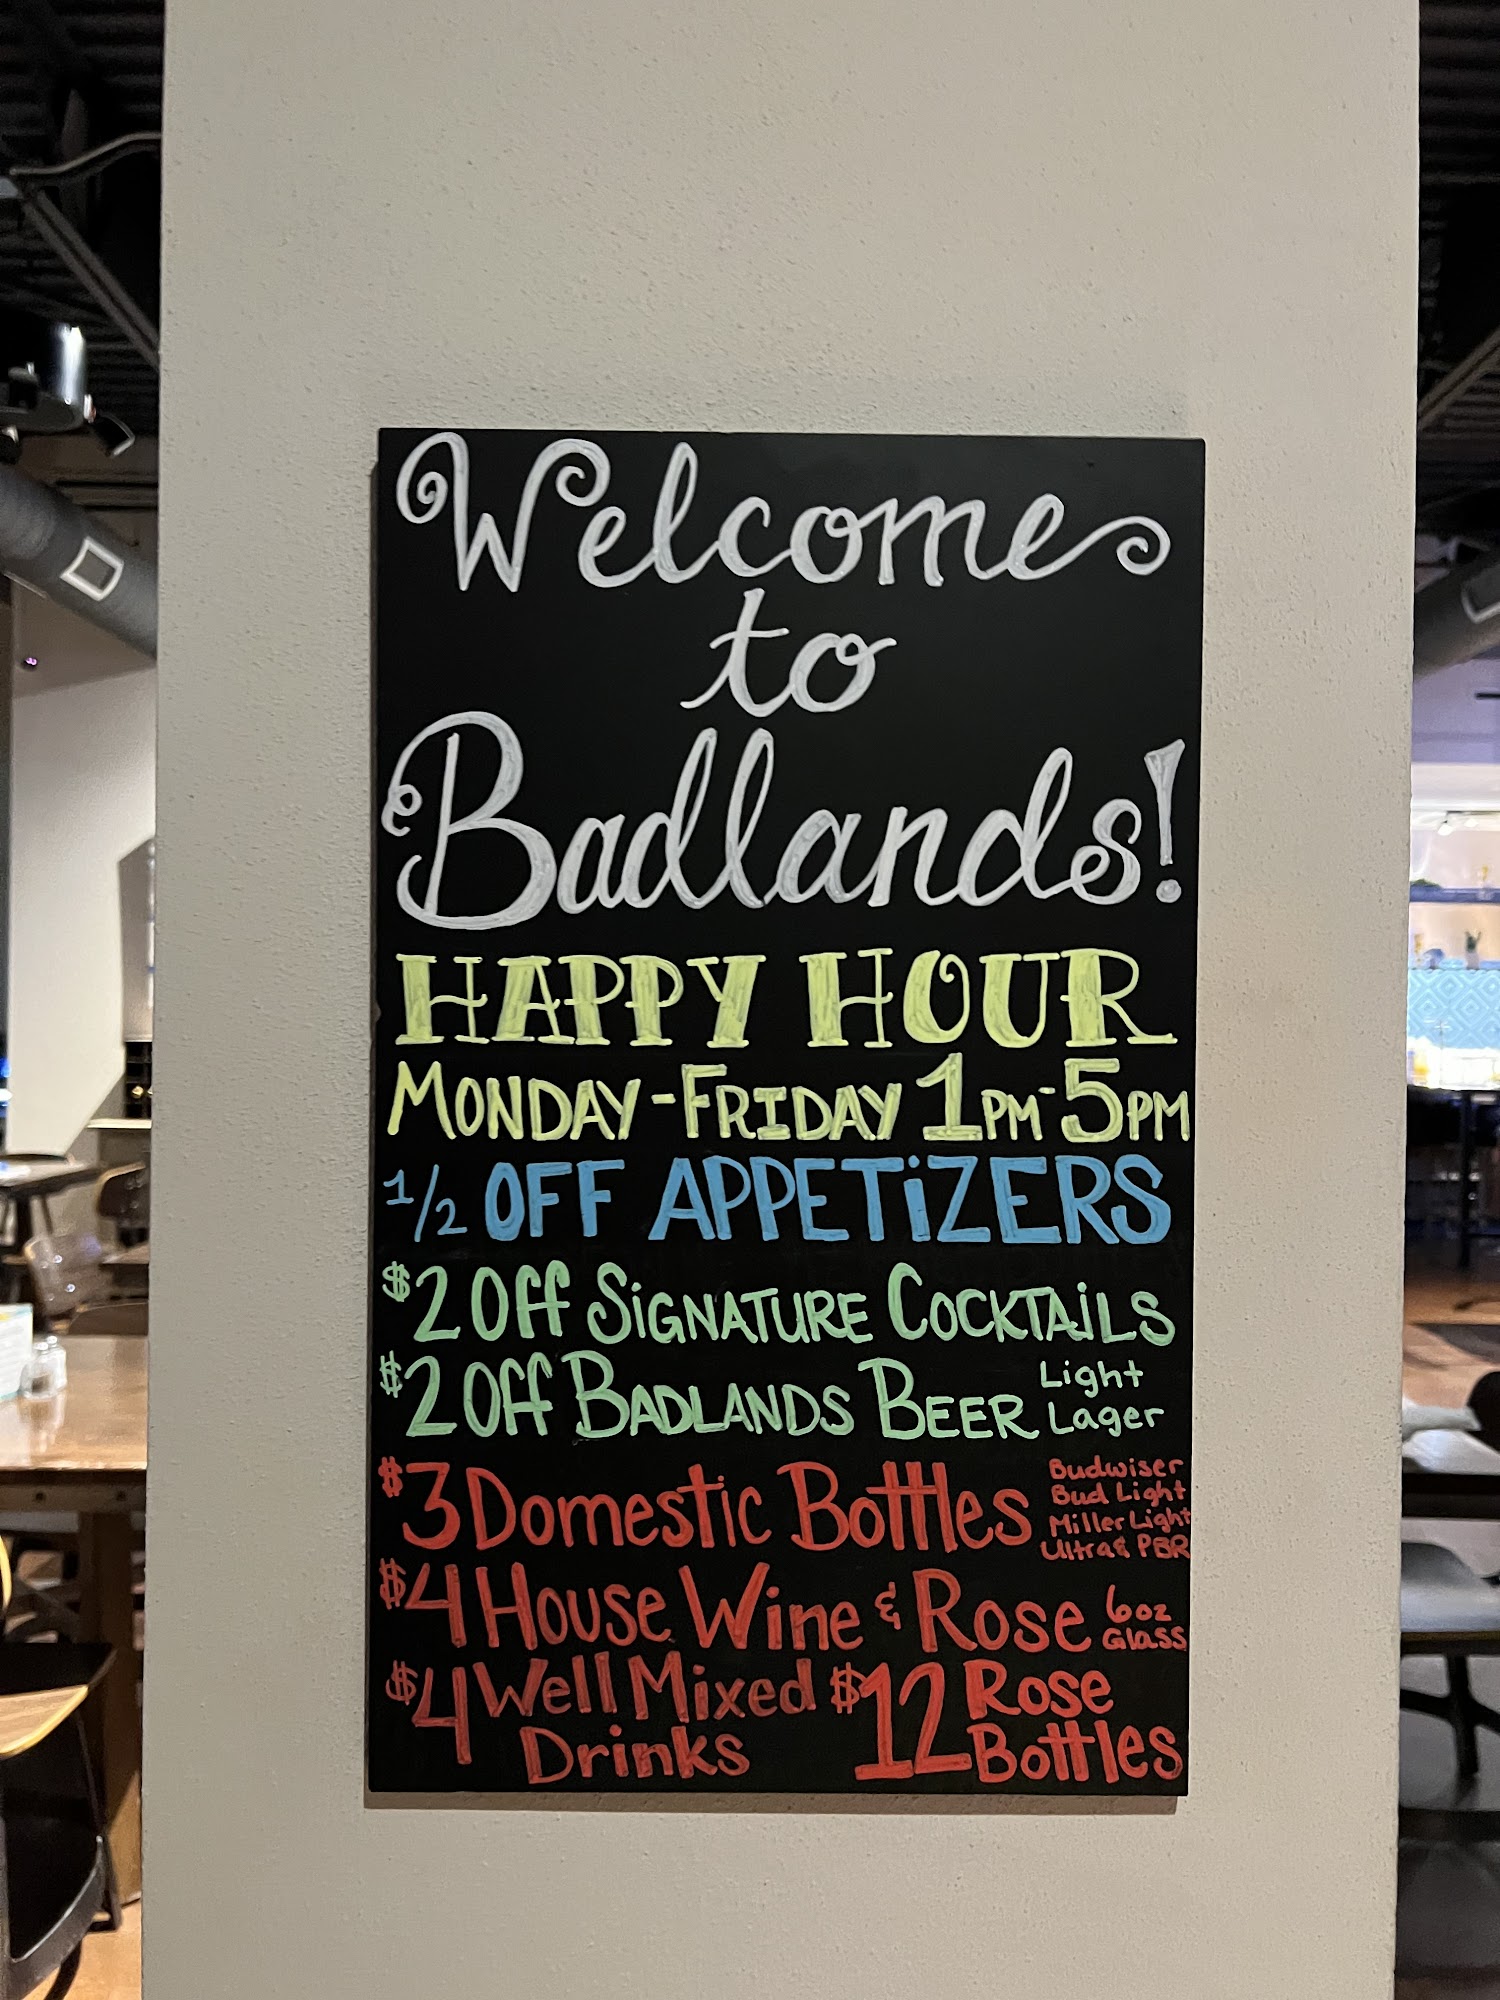 Welcome
to
Badlands!
HAPPY HOUR
MONDAY-FRIDAY 1PM-5PM
1/2 OFF APPETiZERS
$2 Off SiGNATURE COCKTAiLS
$2 Off BADLANDS BEER Light Lager
$3 Domestic Bottles Budwiser Bud Light Miller Light Ultra & PBR
$4 House Wine & Rose 6oz Glass
$4 Well Mixed Drinks $12 Rose Bottles